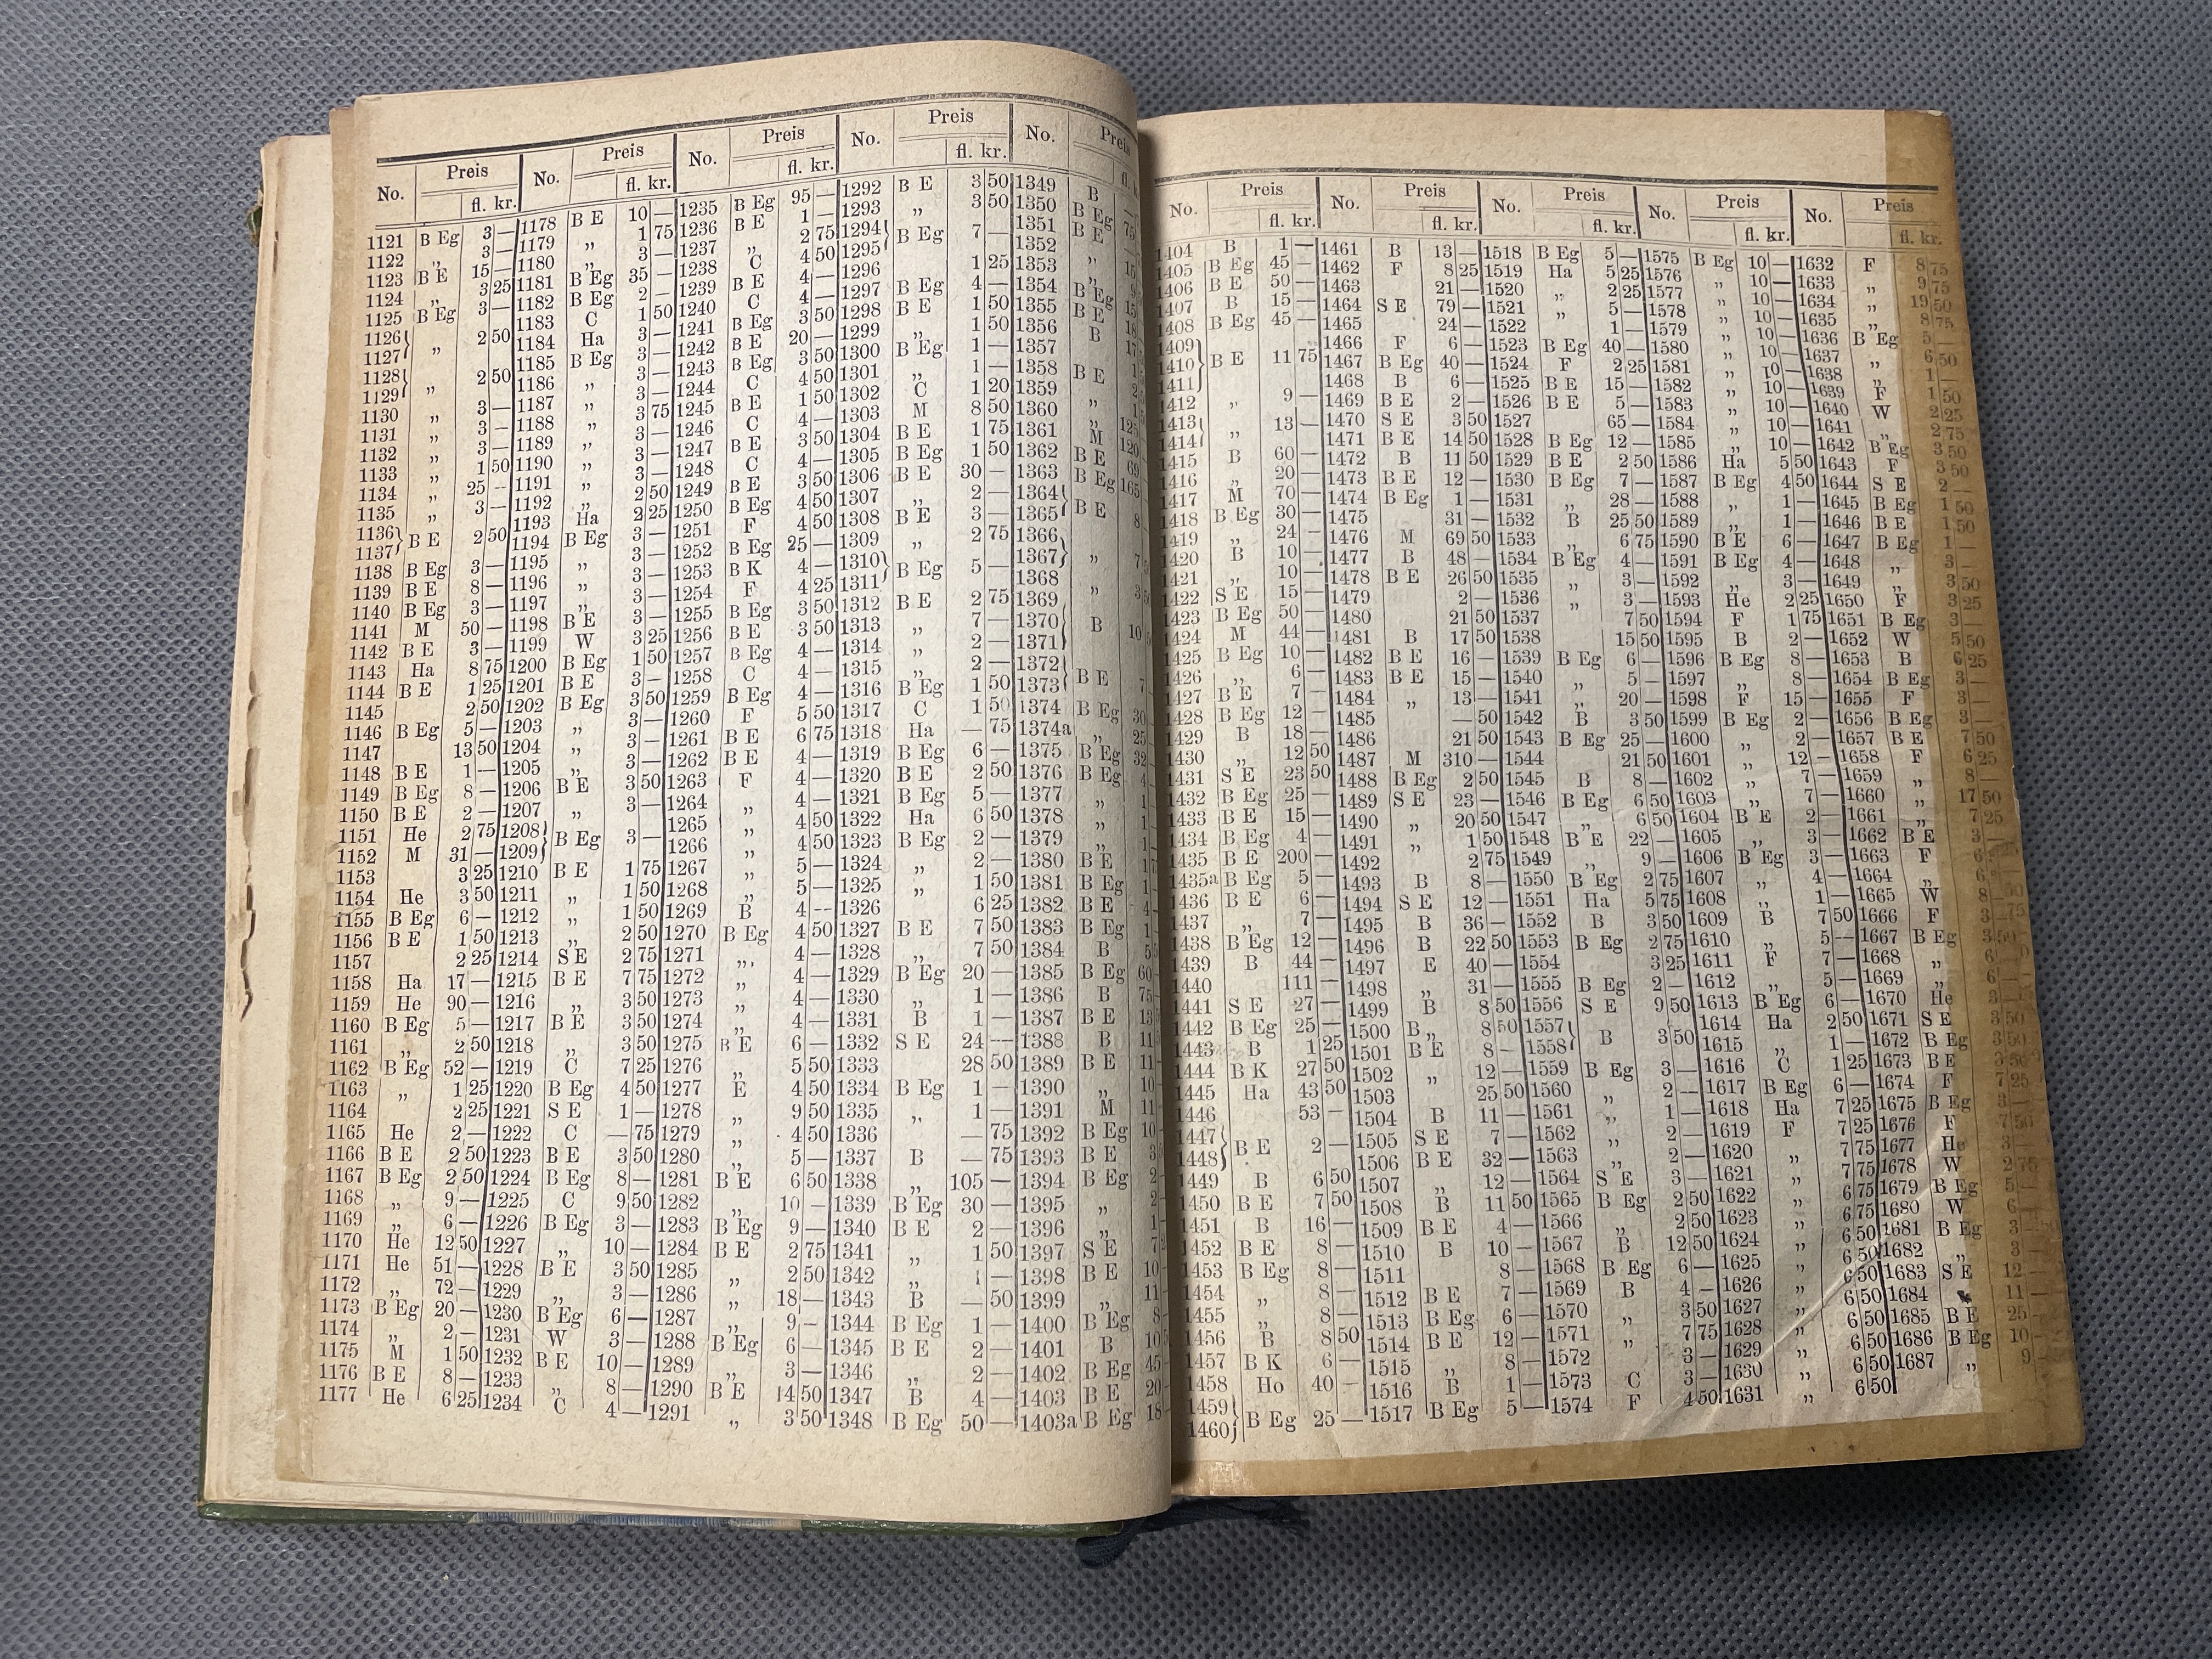 No. Preis fl. kr.
1121 B Eg 3 —
1122 „ 3 —
1123 B E 15 —
1124 „ 3 25
1125 B Eg 3 —
1126
1127 } „ 2 50
1128
1129 } „ 2 50
1130 „ 3 —
1131 „ 3 —
1132 „ 3 —
1133 „ 1 50
1134 „ 25 —
1135 „ 3 —
1136
1137 } B E 2 50
1138 B Eg 3 —
1139 B E 8 —
1140 B Eg 3 —
1141 M 50 —
1142 B E 3 —
1143 Ha 8 75
1144 B E 1 25
1145 2 50
1146 B Eg 5 —
1147 13 50
1148 B E 1 —
1149 B Eg 8 —
1150 B E 2 —
1151 He 2 75
1152 M 31 —
1153 3 25
1154 He 3 50
1155 B Eg 6 —
1156 B E 1 50
1157 2 25
1158 Ha 17 —
1159 He 90 —
1160 B Eg 5 —
1161 „ 2 50
1162 B Eg 52 —
1163 „ 1 25
1164 2 25
1165 He 2 —
1166 B E 2 50
1167 B Eg 2 50
1168 „ 9 —
1169 „ 6 —
1170 He 12 50
1171 He 51 —
1172 „ 72 —
1173 B Eg 20 —
1174 „ 2 —
1175 M 1 50
1176 B E 8 —
1177 He 6 25
No. Preis fl. kr.
1178 B E 10 —
1179 „ 1 75
1180 „ 3 —
1181 B Eg 35 —
1182 B Eg 2 —
1183 C 1 50
1184 Ha 3 —
1185 B Eg 3 —
1186 „ 3 —
1187 „ 3 —
1188 „ 3 75
1189 „ 3 —
1190 „ 3 —
1191 „ 3 —
1192 „ 2 50
1193 Ha 2 25
1194 B Eg 3 —
1195 „ 3 —
1196 „ 3 —
1197 „ 3 —
1198 B E
1199 W 3 25
1200 B Eg 1 50
1201 B E 3 —
1202 B Eg 3 50
1203 „ 3 —
1204 „ 3 —
1205 „ 3 —
1206 B E 3 50
1207 „ 3 —
1208
1209 } B Eg 3 —
1210 B E 1 75
1211 „ 1 50
1212 „ 1 50
1213 „ 2 50
1214 S E 2 75
1215 B E 7 75
1216 „ 3 50
1217 B E 3 50
1218 „ 3 50
1219 C 7 25
1220 B Eg 4 50
1221 S E 1 —
1222 C — 75
1223 B E 3 50
1224 B Eg 8 —
1225 C 9 50
1226 B Eg 3 —
1227 „ 10 —
1228 B E 3 50
1229 „ 3 —
1230 B Eg 6 —
1231 W 3 —
1232 B E 10 —
1233 „ 8 —
1234 C 4 —
No. Preis fl. kr.
1235 B Eg 95 —
1236 B E 1 —
1237 „ 2 75
1238 C 4 50
1239 B E 4 —
1240 C 4 —
1241 B Eg 3 50
1242 B E 20 —
1243 B Eg 3 50
1244 C 4 50
1245 B E 1 50
1246 C 4 —
1247 B E 3 50
1248 C 4 —
1249 B E 3 50
1250 B Eg 4 50
1251 F 4 50
1252 B Eg 25 —
1253 B K 4 —
1254 F 4 25
1255 B Eg 3 50
1256 B E 3 50
1257 B Eg 4 —
1258 C 4 —
1259 B Eg 4 —
1260 F 5 50
1261 B E 6 75
1262 B E 4 —
1263 F 4 —
1264 „ 4 —
1265 „ 4 50
1266 „ 4 50
1267 „ 5 —
1268 „ 5 —
1269 B 4 —
1270 B Eg 4 50
1271 „ 4 —
1272 „ 4 —
1273 „ 4 —
1274 „ 4 —
1275 B E 6 —
1276 „ 5 50
1277 E 4 50
1278 „ 9 50
1279 „ 4 50
1280 „ 5 —
1281 B E 6 50
1282 „ 10 —
1283 B Eg 9 —
1284 B E 2 75
1285 „ 2 50
1286 „ 18 —
1287 „ 9 —
1288 B Eg 6 —
1289 „ 3 —
1290 B E 14 50
1291 „ 3 50
No. Preis fl. kr.
1292 B E 3 50
1293 „ 3 50
1294
1295 } B Eg 7 —
1296 1 25
1297 B Eg 4 —
1298 B E 1 50
1299 „ 1 50
1300 B Eg 1 —
1301 „ 1 —
1302 C 1 20
1303 M 8 50
1304 B E 1 75
1305 B Eg 1 50
1306 B E 30 —
1307 „ 2 —
1308 B E 3 —
1309 „ 2 75
1310
1311 } B Eg 5 —
1312 B E 2 75
1313 „ 7 —
1314 „ 2 —
1315 „ 2 —
1316 B Eg 1 50
1317 C 1 50
1318 Ha — 75
1319 B Eg 6 —
1320 B E 2 50
1321 B Eg 5 —
1322 Ha 6 50
1323 B Eg 2 —
1324 „ 2 —
1325 „ 1 50
1326 6 25
1327 B E 7 50
1328 „ 7 50
1329 B Eg 20 —
1330 „ 1 —
1331 B 1 —
1332 S E 24 —
1333 28 50
1334 B Eg 1 —
1335 „ 1 —
1336 — 75
1337 B — 75
1338 „ 105 —
1339 B Eg 30 —
1340 B E 2 —
1341 „ 1 50
1342 „ 1 —
1343 B — 50
1344 B Eg 1 —
1345 B E 2 —
1346 „ 2 —
1347 B 4 —
1348 B Eg 50 —
No. Preis fl.
1349 B
1350 B Eg
1351 B E
1352
1353 „
1354 „
1355 B Eg
1356 B E
1357 B
1358
1359 B E
1360 „
1361 „
1362 M
1363 B E
1364 B Eg
1365
1366
1367
1368
1369
1370
1371 } B
1372
1373 } B E
1374 B Eg 30
1374a „ 25
1375 B Eg 32
1376 B Eg 4
1377 „ 1
1378 „ 1
1379 „ 1
1380 B E 1
1381 B Eg 1
1382 B E 4
1383 B Eg 1
1384 B 5
1385 B Eg 60
1386 B 75
1387 B E 13
1388 B 11
1389 B E 11
1390 „ 10
1391 M 11
1392 B Eg 10
1393 B E 3
1394 B Eg 2
1395 „ 2
1396 „ 1
1397 S E 7
1398 B E 10
1399 „ 11
1400 B Eg 8
1401 B 10
1402 B Eg 45
1403 B E 20
1403a B Eg 18
No. Preis fl. kr.
1404 B 1 —
1405 B Eg 45 —
1406 B E 50 —
1407 B 15 —
1408 B Eg 45 —
1409
1410
1411 } B E 11 75
1412 „ 9 —
1413
1414 } „ 13 —
1415 B 60 —
1416 „ 20 —
1417 M 70 —
1418 B Eg 30 —
1419 „ 24 —
1420 B 10 —
1421 „ 10 —
1422 S E 15 —
1423 B Eg 50 —
1424 M 44 —
1425 B Eg 10 —
1426 „ 6 —
1427 B E 7 —
1428 B Eg 12 —
1429 B 18 —
1430 „ 12 50
1431 S E 23 50
1432 B Eg 25 —
1433 B E 15 —
1434 B Eg 4 —
1435 B E 200 —
1435a B Eg 5 —
1436 B E 6 —
1437 „ 7 —
1438 B Eg 12 —
1439 B 44 —
1440 111 —
1441 S E 27 —
1442 B Eg 25 —
1443 B 1 25
1444 B K 27 50
1445 Ha 43 50
1446 53 —
1447
1448 } B E 2 —
1449 B 6 50
1450 B E 7 50
1451 B 16 —
1452 B E 8 —
1453 B Eg 8 —
1454 „ 8 —
1455 „ 8 —
1456 B 8 50
1457 B K 6 —
1458 Ho 40 —
1459
1460 } B Eg 25 —
No. Preis fl. kr.
1461 B 13 —
1462 F 8 25
1463 21 —
1464 S E 79 —
1465 24 —
1466 F 6 —
1467 B Eg 40 —
1468 B 6 —
1469 B E 2 —
1470 S E 3 50
1471 B E 14 50
1472 B 11 50
1473 B E 12 —
1474 B Eg 1 —
1475 31 —
1476 M 69 50
1477 B 48 —
1478 B E 26 50
1479 2 —
1480 21 50
1481 B 17 50
1482 B E 16 —
1483 B E 15 —
1484 „ 13 —
1485 — 50
1486 21 50
1487 M 310 —
1488 B Eg 2 50
1489 S E 23 —
1490 „ 20 50
1491 „ 1 50
1492 2 75
1493 B 8 —
1494 S E 12 —
1495 B 36 —
1496 B 22 50
1497 E 40 —
1498 „ 31 —
1499 B 8 50
1500 B„ 8 50
1501 B E 8 —
1502 „ 12 —
1503 25 50
1504 B 11 —
1505 S E 7 —
1506 B E 32 —
1507 „ 12 —
1508 B 11 50
1509 B E 4 —
1510 B 10 —
1511 8 —
1512 B E 7 —
1513 B Eg 6 —
1514 B E 12 —
1515 „ 8 —
1516 B 1 —
1517 B Eg 5 —
No. Preis fl. kr.
1518 B Eg 5 —
1519 Ha 5 25
1520 „ 2 25
1521 „ 5 —
1522 1 —
1523 B Eg 40 —
1524 F 2 25
1525 B E 15 —
1526 B E 5 —
1527 65 —
1528 B Eg 12 —
1529 B E 2 50
1530 B Eg 7 —
1531 „ 28 —
1532 B 25 50
1533 „ 6 75
1534 B Eg 4 —
1535 „ 3 —
1536 „ 3 —
1537 7 50
1538 15 50
1539 B Eg 6 —
1540 „ 5 —
1541 „ 20 —
1542 B 3 50
1543 B Eg 25 —
1544 21 50
1545 B 8 —
1546 B Eg 6 50
1547 „ 6 50
1548 B E 22 —
1549 „ 9 —
1550 B Eg 2 75
1551 Ha 5 75
1552 B 3 50
1553 B Eg 2 75
1554 3 25
1555 B Eg 2 —
1556 S E 9 50
1557
1558 } B 3 50
1559 B Eg 3 —
1560 „ 2 —
1561 „ 1 —
1562 „ 2 —
1563 „ 2 —
1564 S E 3 —
1565 B Eg 2 50
1566 „ 2 50
1567 B 12 50
1568 B Eg 6 —
1569 B 4 —
1570 „ 3 50
1571 „ 7 75
1572 3 —
1573 C 3 —
1574 F 4 50
No. Preis fl. kr.
1575 B Eg 10 —
1576 „ 10 —
1577 „ 10 —
1578 „ 10 —
1579 „ 10 —
1580 „ 10 —
1581 „ 10 —
1582 „ 10 —
1583 „ 10 —
1584 „ 10 —
1585 „ 10 —
1586 Ha 5 50
1587 B Eg 4 50
1588 „ 1 —
1589 „ 1 —
1590 B E 6 —
1591 B Eg 4 —
1592 „ 3 —
1593 He 2 25
1594 F 1 75
1595 B 2 —
1596 B Eg 8 —
1597 „ 8 —
1598 F 15 —
1599 B Eg 2 —
1600 „ 2 —
1601 „ 12 —
1602 „ 7 —
1603 „ 7 —
1604 B E 2 —
1605 „ 3 —
1606 B Eg 3 —
1607 „ 4 —
1608 „ 1 —
1609 B 7 50
1610 „ 5 —
1611 F 7 —
1612 „ 5 —
1613 B Eg 6 —
1614 Ha 2 50
1615 „ 1 —
1616 C 1 25
1617 B Eg 6 —
1618 Ha 7 25
1619 F 7 25
1620 „ 7 75
1621 „ 7 75
1622 „ 6 75
1623 „ 6 75
1624 „ 6 50
1625 „ 6 50
1626 „ 6 50
1627 „ 6 50
1628 „ 6 50
1629 „ 6 50
1630 „ 6 50
1631 „ 6 50
No. Preis fl. kr.
1632 F 8 75
1633 „ 9 75
1634 „ 19 50
1635 „ 8 75
1636 B Eg 5 —
1637 „ 6 50
1638 „ 1 —
1639 F 1 50
1640 W 2 25
1641 „ 2 75
1642 B Eg 3 50
1643 F 3 50
1644 S E 2 —
1645 B Eg 1 50
1646 B E 1 50
1647 B Eg 1 —
1648 „ 3 —
1649 „ 3 50
1650 F 3 25
1651 B Eg 3 —
1652 W 5 50
1653 B 6 25
1654 B Eg 3 —
1655 F 3 —
1656 B Eg 3 —
1657 B E 7 50
1658 F 6 25
1659 „ 8 —
1660 „ 17 50
1661 „ 7 25
1662 B E 3 —
1663 F 6
1664 „ 6
1665 W 8
1666 F 3
1667 B Eg 3 50
1668 „ 6
1669 „ 6
1670 He 3
1671 S E 3 50
1672 B Eg 3 50
1673 B E 3 50
1674 F 7 25
1675 B Eg 3 —
1676 F 7 50
1677 He 3 —
1678 W 2 75
1679 B Eg 5 —
1680 W 6 —
1681 B Eg 3 —
1682 „ 3 —
1683 S E 12 —
1684 11 —
1685 B E 25 —
1686 B Eg 10 —
1687 „ 9 —